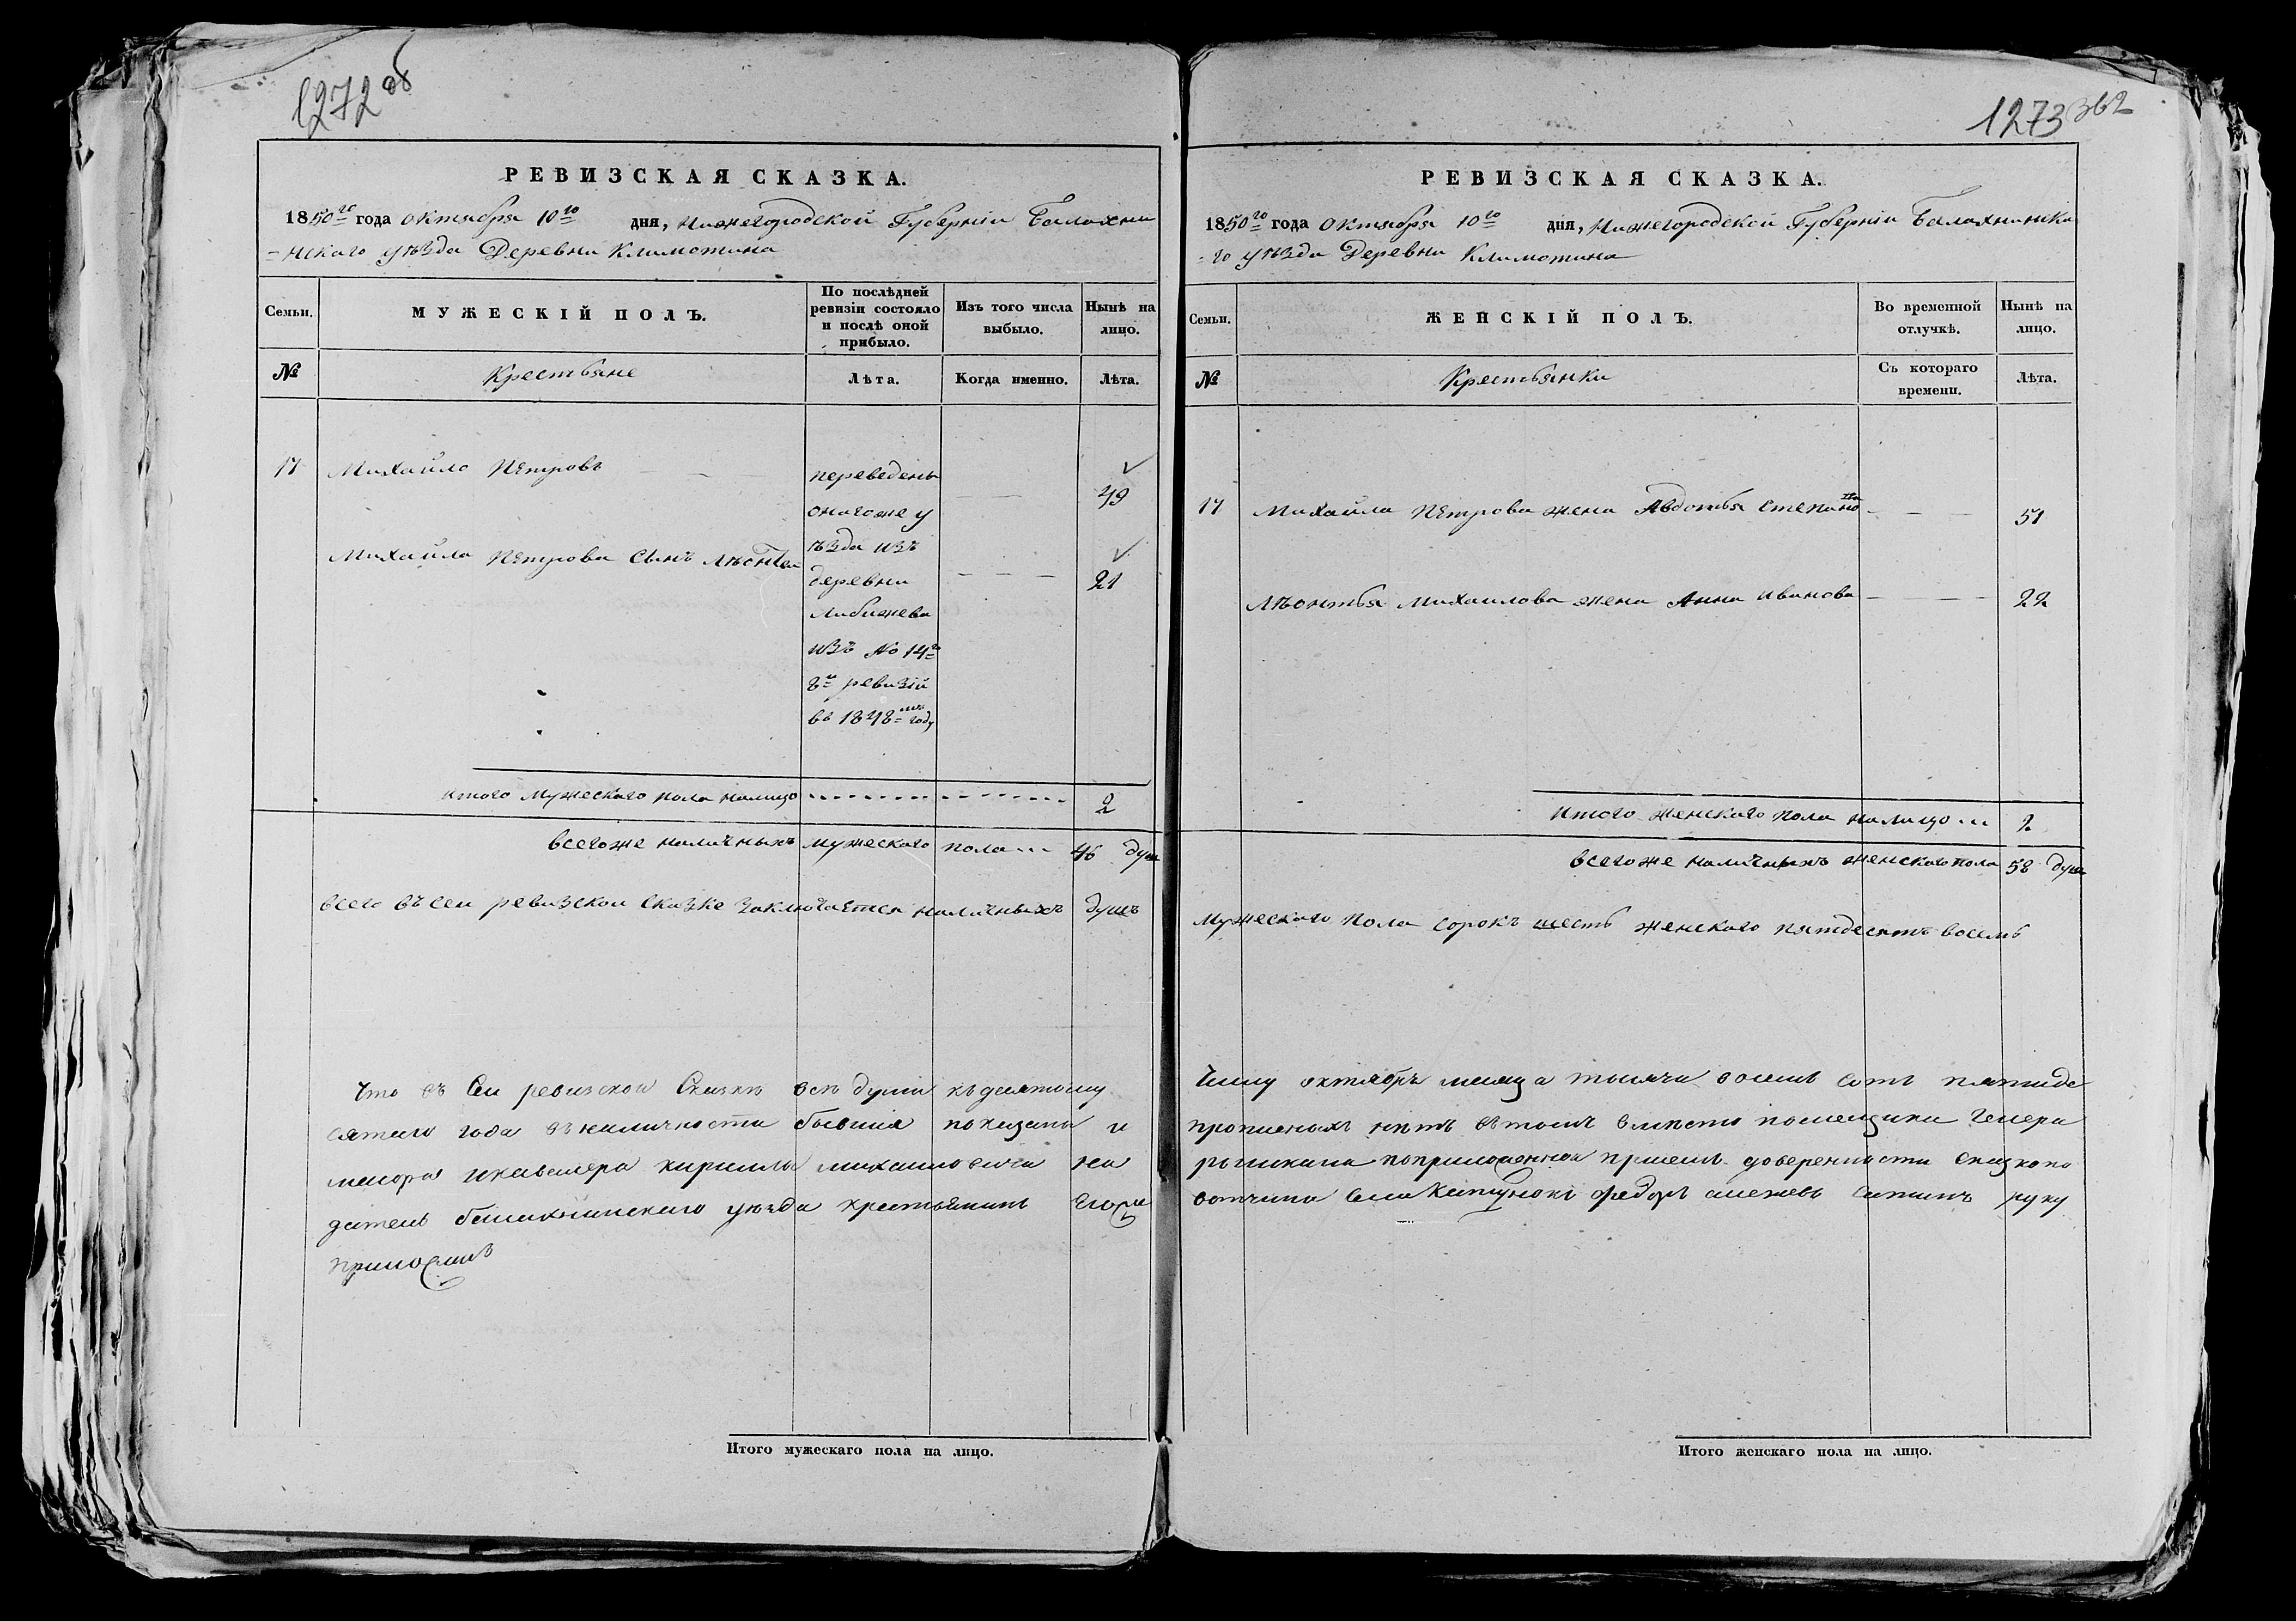 1272 об
РЕВИЗСКАЯ СКАЗКА.
1850го года октября 10го дня, Нижегородской Губерніи Балахни
-нскаго уѣзда Деревни Климотина
Семьи.
МУЖЕСКІЙ ПОЛЪ.
По послѣдней ревизіи состояло и послѣ оной прибыло.
Изъ того числа выбыло.
Нынѣ на лицо.
№
Крестьяне
Лѣта.
Когда именно.
Лѣта.
17 Михайло Петровъ
переведены
49
оного же у
Михайла Петрова сынъ Лѣонтей
ѣзда изъ
деревни
21
изъ № 14го
8й ревизій
въ 1848мъ году
итого мужескаго пола налицо 2
всегоже наличныхъ мужескаго пола... 46 душ
всего въ сеи ревизскои сказке заключается наличныхъ душъ
Что въ сеи ревизской сказкѣ всѣ души къ десятому
сятаго года въ наличности бывшія показаны и
маіора и кавалера кириллы михаиловича на
датель балахнинскаго уѣзда крестьянинъ его же
приложилъ
Итого мужескаго пола на лицо.
1273 362
РЕВИЗСКАЯ СКАЗКА.
1850го года октября 10го дня, Нижегородской Губерніи Балахнинска
-го уѣзда Деревни Климотина
Семьи.
ЖЕНСКІЙ ПОЛЪ.
Во временной отлучкѣ.
Нынѣ на лицо.
№
Крестьянки
Съ котораго времени.
Лѣта.
17 Михайла Петрова жена Авдотья Степанова 51
Лѣонтья Михаилова жена Анна Иванова 22
Итого женскаго пола налицо ... 2
всегоже наличныхъ женскаго пола 58 душ
Мужескаго пола сорокъ шесть женскаго пятдесятъ восемь
числу октябръ месяца тысяча восемь сотъ пятиде
прописныхъ нѣтъ въ томъ вместо помещика генера
рышкина поприложенной при семъ доверенности сказкопо
вотчины села Катунокъ федоръ руку
Итого женскаго пола на лицо.